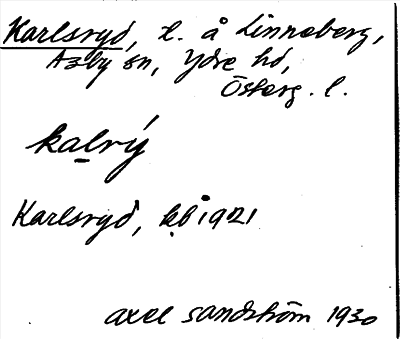 Karlsryd, t. å Linneberg,
Asby sn, Ydre hd,
Österg. l.
kalrý
Karlsryd, kb 1921
Axel Sandström 1930